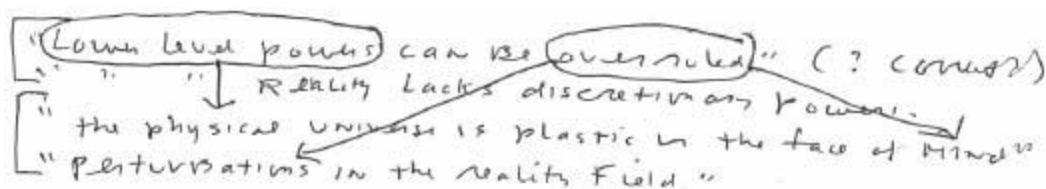 "Lower level powers can be overruled" (?
" " " Reality lacks discretionary powers.
" the physical universe is plastic in the face of Mind"
" Perturbations in the reality Field "